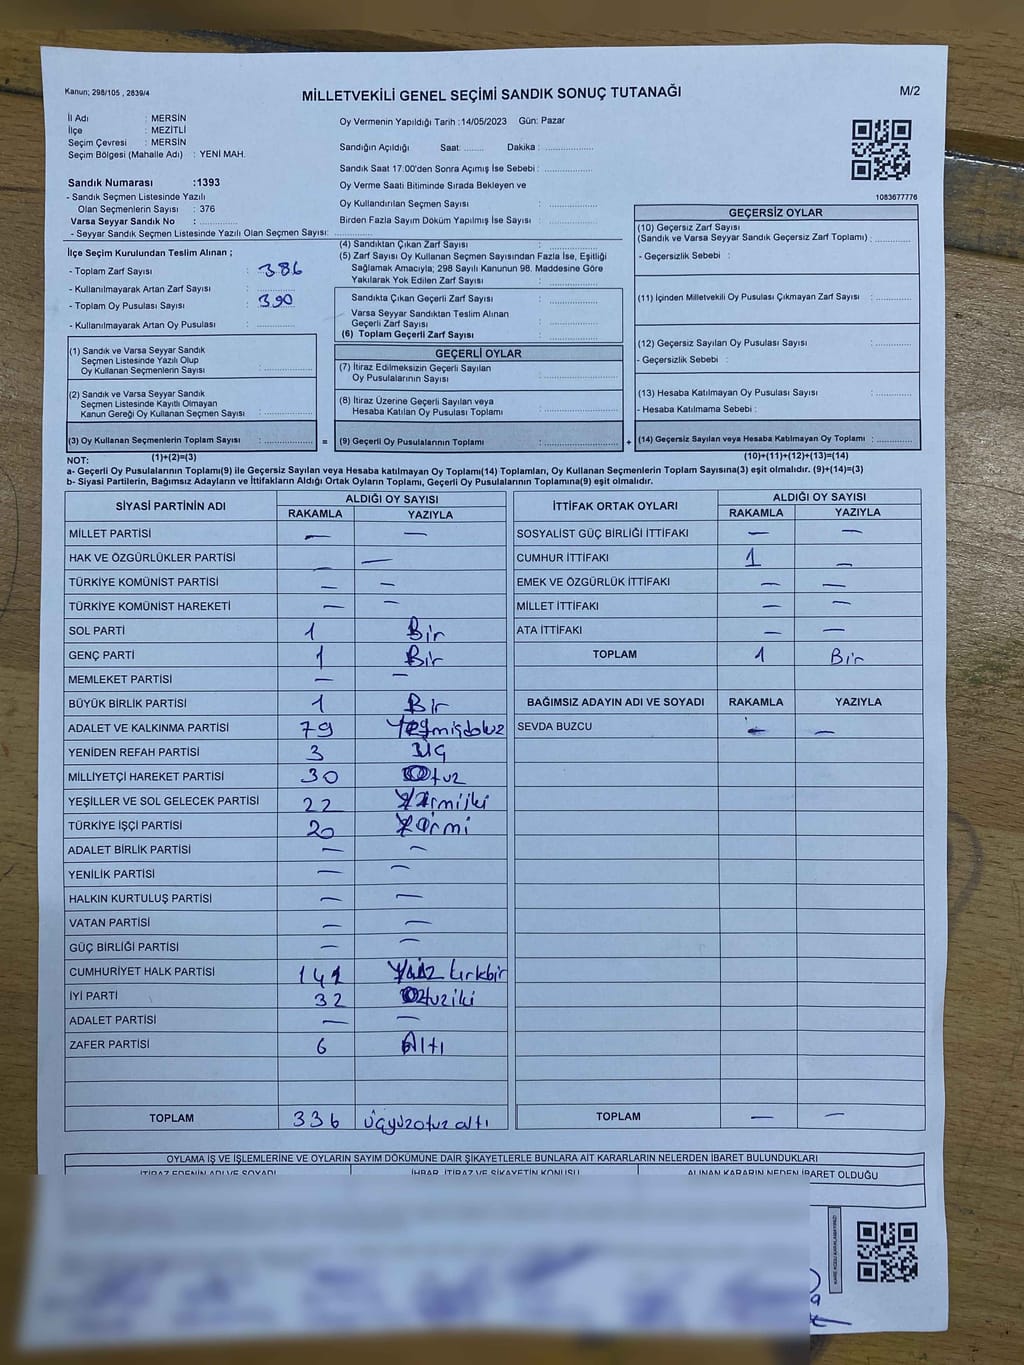 Kanun; 298/105 , 2839/4
MİLLETVEKİLİ GENEL SEÇİMİ SANDIK SONUÇ TUTANAĞI
M/2
İl Adı : MERSİN
İlçe : MEZİTLİ
Seçim Çevresi : MERSİN
Seçim Bölgesi (Mahalle Adı) : YENİ MAH.
Sandık Numarası :1393
- Sandık Seçmen Listesinde Yazılı
Olan Seçmenlerin Sayısı : 376
Varsa Seyyar Sandık No :
- Seyyar Sandık Seçmen Listesinde Yazılı Olan Seçmen Sayısı:
İlçe Seçim Kurulundan Teslim Alınan ;
- Toplam Zarf Sayısı : 386
- Kullanılmayarak Artan Zarf Sayısı :
- Toplam Oy Pusulası Sayısı : 390
- Kullanılmayarak Artan Oy Pusulası :
(1) Sandık ve Varsa Seyyar Sandık
Seçmen Listesinde Yazılı Olup
Oy Kullanan Seçmenlerin Sayısı :
(2) Sandık ve Varsa Seyyar Sandık
Seçmen Listesinde Kayıtlı Olmayan
Kanun Gereği Oy Kullanan Seçmen Sayısı :
(3) Oy Kullanan Seçmenlerin Toplam Sayısı :
(1)+(2)=(3)
Oy Vermenin Yapıldığı Tarih :14/05/2023 Gün: Pazar
Sandığın Açıldığı Saat: ........ Dakika :
Sandık Saat 17:00'den Sonra Açımış İse Sebebi :
Oy Verme Saati Bitiminde Sırada Bekleyen ve
Oy Kullandırılan Seçmen Sayısı :
Birden Fazla Sayım Döküm Yapılmış İse Sayısı :
(4) Sandıktan Çıkan Zarf Sayısı :
(5) Zarf Sayısı Oy Kullanan Seçmen Sayısından Fazla İse, Eşitliği
Sağlamak Amacıyla; 298 Sayılı Kanunun 98. Maddesine Göre
Yakılarak Yok Edilen Zarf Sayısı :
Sandıkta Çıkan Geçerli Zarf Sayısı :
Varsa Seyyar Sandıktan Teslim Alınan
Geçerli Zarf Sayısı :
(6) Toplam Geçerli Zarf Sayısı :
GEÇERLİ OYLAR
(7) İtiraz Edilmeksizin Geçerli Sayılan
Oy Pusulalarının Sayısı :
(8) İtiraz Üzerine Geçerli Sayılan veya
Hesaba Katılan Oy Pusulası Toplamı :
= (9) Geçerli Oy Pusulalarının Toplamı :
1083677776
GEÇERSİZ OYLAR
(10) Geçersiz Zarf Sayısı
(Sandık ve Varsa Seyyar Sandık Geçersiz Zarf Toplamı) :
- Geçersizlik Sebebi :
(11) İçinden Milletvekili Oy Pusulası Çıkmayan Zarf Sayısı :
(12) Geçersiz Sayılan Oy Pusulası Sayısı :
- Geçersizlik Sebebi :
(13) Hesaba Katılmayan Oy Pusulası Sayısı :
- Hesaba Katılmama Sebebi :
+ (14) Geçersiz Sayılan veya Hesaba Katılmayan Oy Toplamı :
(10)+(11)+(12)+(13)=(14)
NOT:
a- Geçerli Oy Pusulalarının Toplamı(9) ile Geçersiz Sayılan veya Hesaba katılmayan Oy Toplamı(14) Toplamları, Oy Kullanan Seçmenlerin Toplam Sayısına(3) eşit olmalıdır. (9)+(14)=(3)
b- Siyasi Partilerin, Bağımsız Adayların ve İttifakların Aldığı Ortak Oyların Toplamı, Geçerli Oy Pusulalarının Toplamına(9) eşit olmalıdır.
SİYASİ PARTİNİN ADI ALDIĞI OY SAYISI
RAKAMLA YAZIYLA
MİLLET PARTİSİ — —
HAK VE ÖZGÜRLÜKLER PARTİSİ — —
TÜRKİYE KOMÜNİST PARTİSİ — —
TÜRKİYE KOMÜNİST HAREKETİ — —
SOL PARTİ 1 Bir
GENÇ PARTİ 1 Bir
MEMLEKET PARTİSİ — —
BÜYÜK BİRLİK PARTİSİ 1 Bir
ADALET VE KALKINMA PARTİSİ 79 Yetmişdokuz
YENİDEN REFAH PARTİSİ 3 Üç
MİLLİYETÇİ HAREKET PARTİSİ 30 Otuz
YEŞİLLER VE SOL GELECEK PARTİSİ 22 Yirmiiki
TÜRKİYE İŞÇİ PARTİSİ 20 Yirmi
ADALET BİRLİK PARTİSİ — —
YENİLİK PARTİSİ — —
HALKIN KURTULUŞ PARTİSİ — —
VATAN PARTİSİ — —
GÜÇ BİRLİĞİ PARTİSİ — —
CUMHURİYET HALK PARTİSİ 141 Yüz kırkbir
İYİ PARTİ 32 Otuziki
ADALET PARTİSİ — —
ZAFER PARTİSİ 6 Altı
TOPLAM 336 üçyüzotuz altı
İTTİFAK ORTAK OYLARI ALDIĞI OY SAYISI
RAKAMLA YAZIYLA
SOSYALİST GÜÇ BİRLİĞİ İTTİFAKI — —
CUMHUR İTTİFAKI 1 —
EMEK VE ÖZGÜRLÜK İTTİFAKI — —
MİLLET İTTİFAKI — —
ATA İTTİFAKI — —
TOPLAM 1 Bir
BAĞIMSIZ ADAYIN ADI VE SOYADI RAKAMLA YAZIYLA
SEVDA BUZCU — —
TOPLAM — —
OYLAMA İŞ VE İŞLEMLERİNE VE OYLARIN SAYIM DÖKÜMÜNE DAİR ŞİKAYETLERLE BUNLARA AİT KARARLARIN NELERDEN İBARET BULUNDUKLARI
İTİRAZ EDENİN ADI VE SOYADI İHBAR, İTİRAZ VE ŞİKAYETİN KONUSU ALINAN KARARIN NEDEN İBARET OLDUĞU